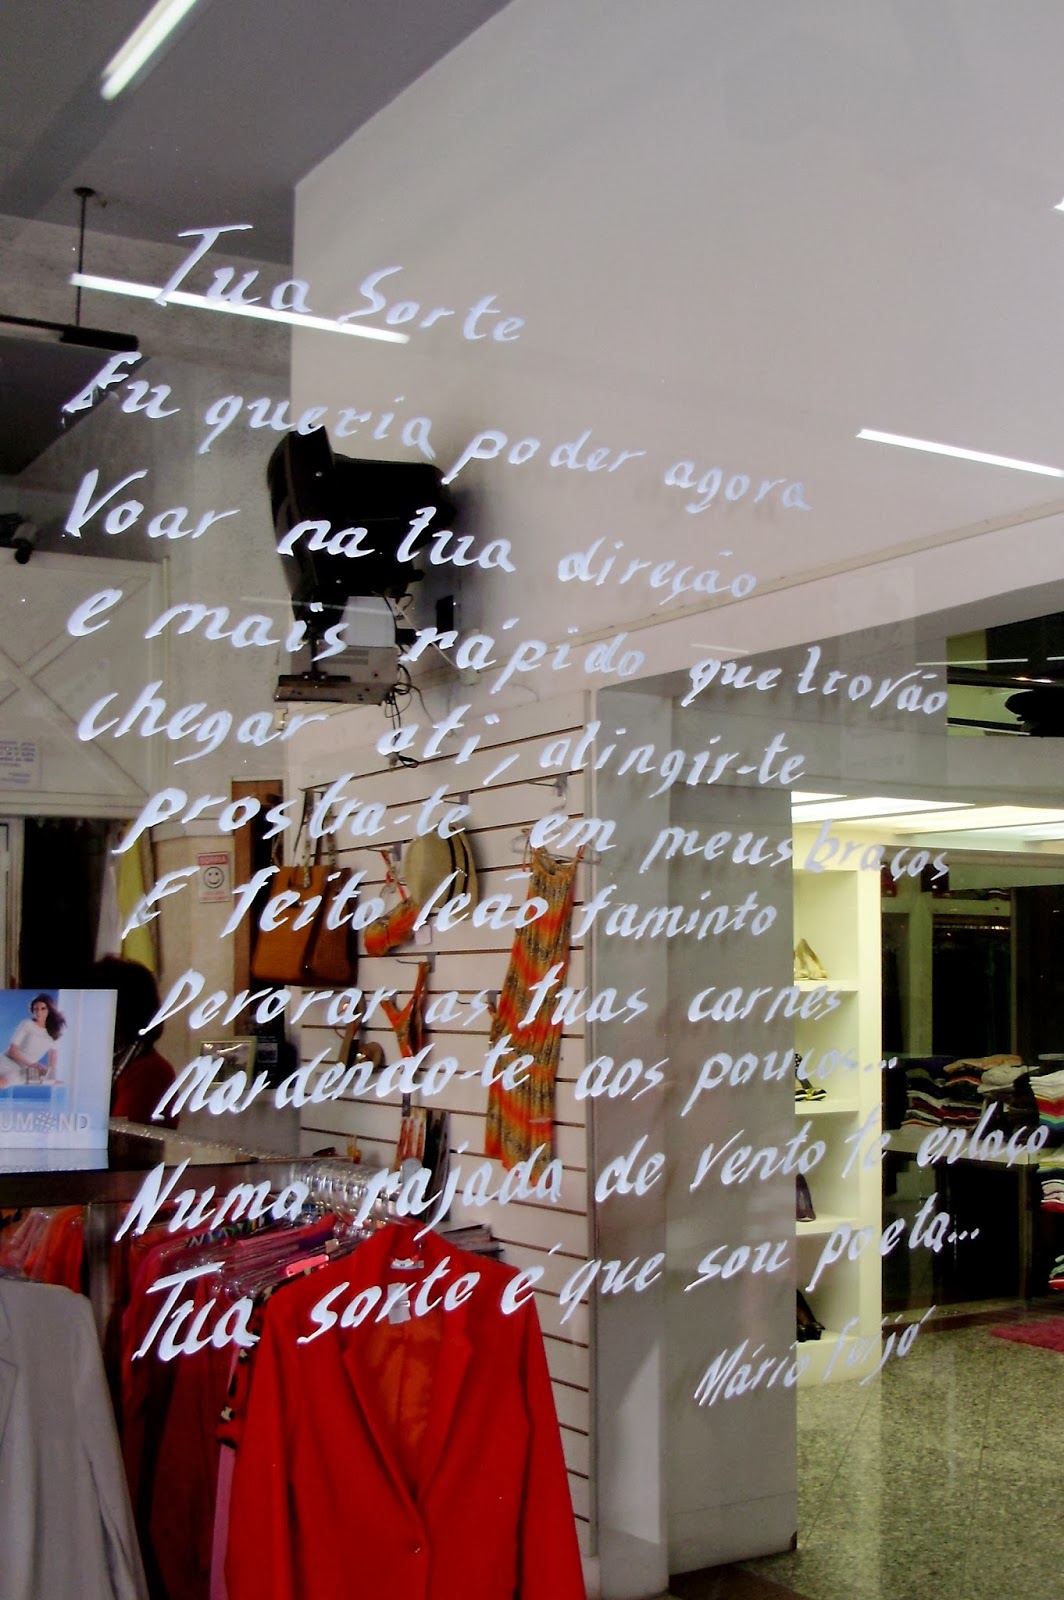 Tua Sorte
Eu queria poder agora
Voar na tua direção
e mais rápido que trovão
chegar a ti, atingir-te
prostra-te em meus braços
E feito leão faminto
Devorar as tuas carnes
Mordendo-te aos poucos...
Numa rajada de vento te enlaço
Tua sorte é que sou poeta...
Mário Feijó